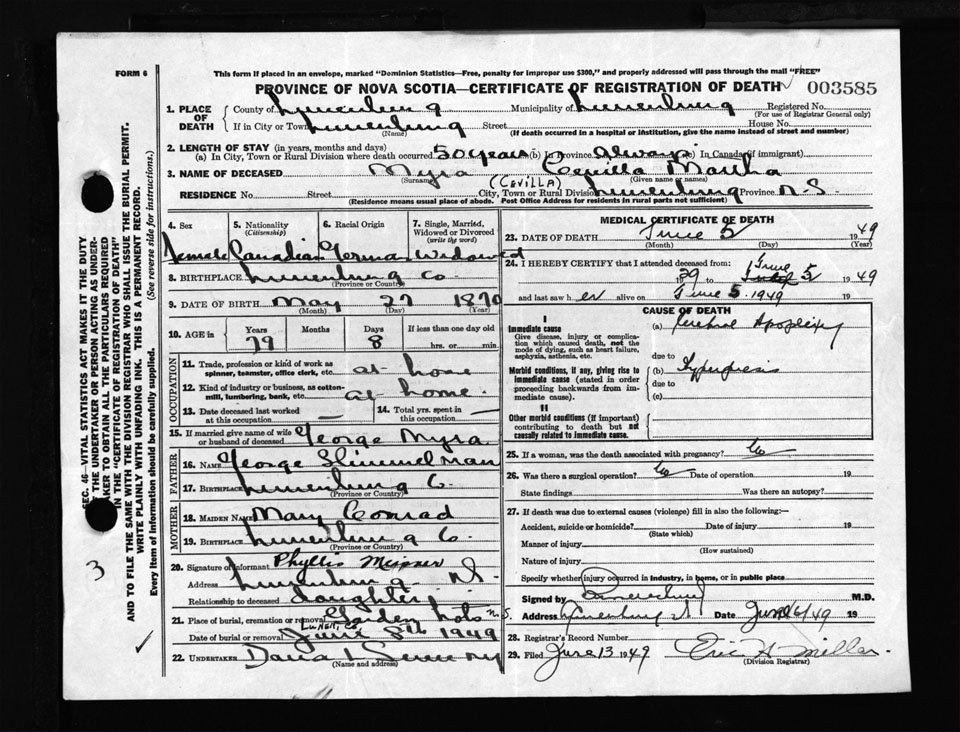 FORM 6
This form if placed in an envelope, marked "Dominion Statistics—Free, penalty for improper use $300," and properly addressed will pass through the mail "FREE"
PROVINCE OF NOVA SCOTIA—CERTIFICATE OF REGISTRATION OF DEATH
003585
1. PLACE OF DEATH
County of Lunenburg Municipality of Lunenburg Registered No.
(For use of Registrar General only)
If in City or Town Lunenburg Street House No.
(Name) (If death occurred in a hospital or institution, give the name instead of street and number)
2. LENGTH OF STAY (in years, months and days)
(a) In City, Town or Rural Division where death occurred 50 years (b) In Province always (c) In Canada (if immigrant)
3. NAME OF DECEASED Myra Cevilla Martha
(Surname) (CEVILLA) (Given name or names)
RESIDENCE No. Street City, Town or Rural Division Lunenburg Province N.S.
(Residence means usual place of abode. Post Office Address for residents in rural parts not sufficient)
4. Sex
Female
5. Nationality
(Citizenship)
Canadian
6. Racial Origin
German
7. Single, Married, Widowed or Divorced
(write the word)
Widowed
8. BIRTHPLACE Lunenburg Co
(Province or Country)
9. DATE OF BIRTH May 27 1870
(Month) (Day) (Year)
10. AGE in
Years Months Days If less than one day old
79 8 hrs. or min.
OCCUPATION
11. Trade, profession or kind of work as spinner, teamster, office clerk, etc. at home
12. Kind of industry or business, as cotton-mill, lumbering, bank, etc. at home.
13. Date deceased last worked at this occupation —
14. Total yrs. spent in this occupation —
15. If married give name of wife or husband of deceased George Myra
FATHER
16. NAME George Shimmelman
17. BIRTHPLACE Lunenburg C.
(Province or Country)
MOTHER
18. MAIDEN NAME Mary Conrad
19. BIRTHPLACE Lunenburg Co.
(Province or Country)
20. Signature of informant Phyllis Meisner
Address Lunenburg N.S.
Relationship to deceased daughter
21. Place of burial, cremation or removal Garden Lots N.S.
LUNEN. CO.
Date of burial or removal June 8th 1949
22. UNDERTAKER
(Name and address)
MEDICAL CERTIFICATE OF DEATH
23. DATE OF DEATH June 5 1949
(Month) (Day) (Year)
24. I HEREBY CERTIFY that I attended deceased from:
1929 to June 5 1949
and last saw her alive on June 5 1949 19
CAUSE OF DEATH
I
Immediate cause
Give disease, injury or complication which caused death, not the mode of dying, such as heart failure, asphyxia, asthenia, etc.
(a) Cerebral Apoplexy
due to
Morbid conditions, if any, giving rise to immediate cause (stated in order proceeding backwards from immediate cause).
(b)
due to
(c)
II
Other morbid conditions (if important) contributing to death but not causally related to immediate cause.
25. If a woman, was the death associated with pregnancy? No
26. Was there a surgical operation? No Date of operation 19
State findings Was there an autopsy?
27. If death was due to external causes (violence) fill in also the following:—
Accident, suicide or homicide? Date of injury 19
(State which)
Manner of injury
(How sustained)
Nature of injury
Specify whether injury occurred in industry, in home, or in public place
Signed by M.D.
Address Lunenburg Date June 6/49 19
28. Registrar's Record Number
29. Filed June 13 1949 Eric H Millar.
(Division Registrar)
SEC. 46—VITAL STATISTICS ACT MAKES IT THE DUTY
OF THE UNDERTAKER OR PERSON ACTING AS UNDER-
TAKER TO OBTAIN ALL THE PARTICULARS REQUIRED
IN THE "CERTIFICATE OF REGISTRATION OF DEATH"
AND TO FILE THE SAME WITH THE DIVISION REGISTRAR WHO SHALL ISSUE THE BURIAL PERMIT.
WRITE PLAINLY WITH UNFADING INK. THIS IS A PERMANENT RECORD.
Every item of information should be carefully supplied. (See reverse side for instructions.)
3